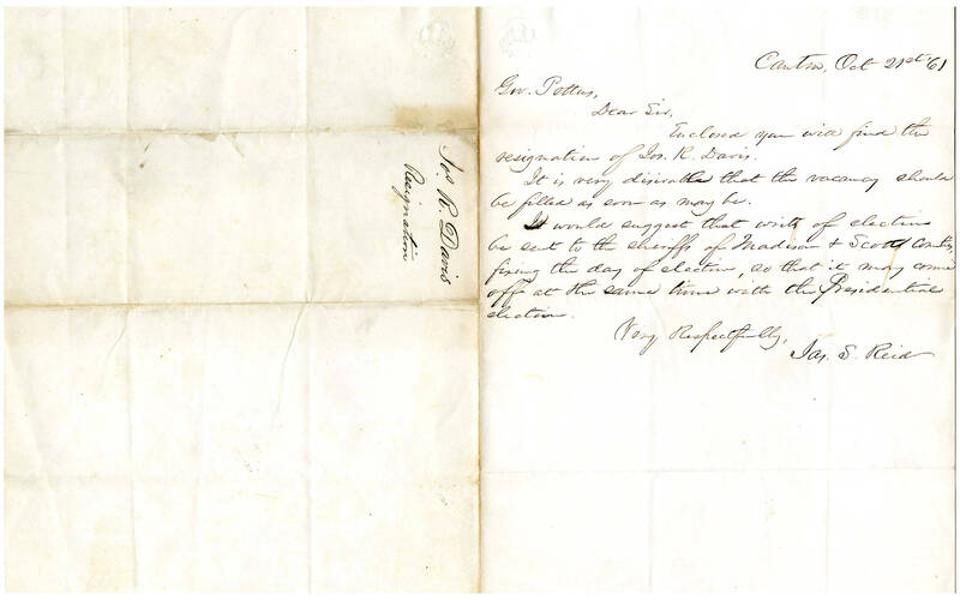 Jos. R. Davis
Resignation
Canton, Oct 21st '61
Gov. Pettus,
Dear Sir,
Enclosed you will find the
resignation of Jos. R. Davis.
It is very disirable that the vacancy should
be filled as soon as may be.
I would suggest that writs of election
be sent to the sheriffs of Madison & Scott counties,
fixing the day of election, so that it may come
off at the same time with the Presidential
election.
Very Respectfully,
Jas. S. Reid